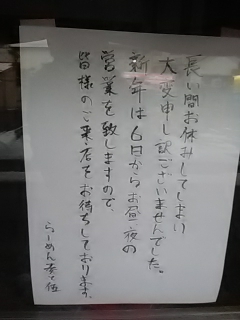 長い間お休みしてしまい
大変申し訳ございませんでした。
新年は6日からお昼夜の
営業を致しますので、
皆様のご来店をお待ちしております。
らーめん